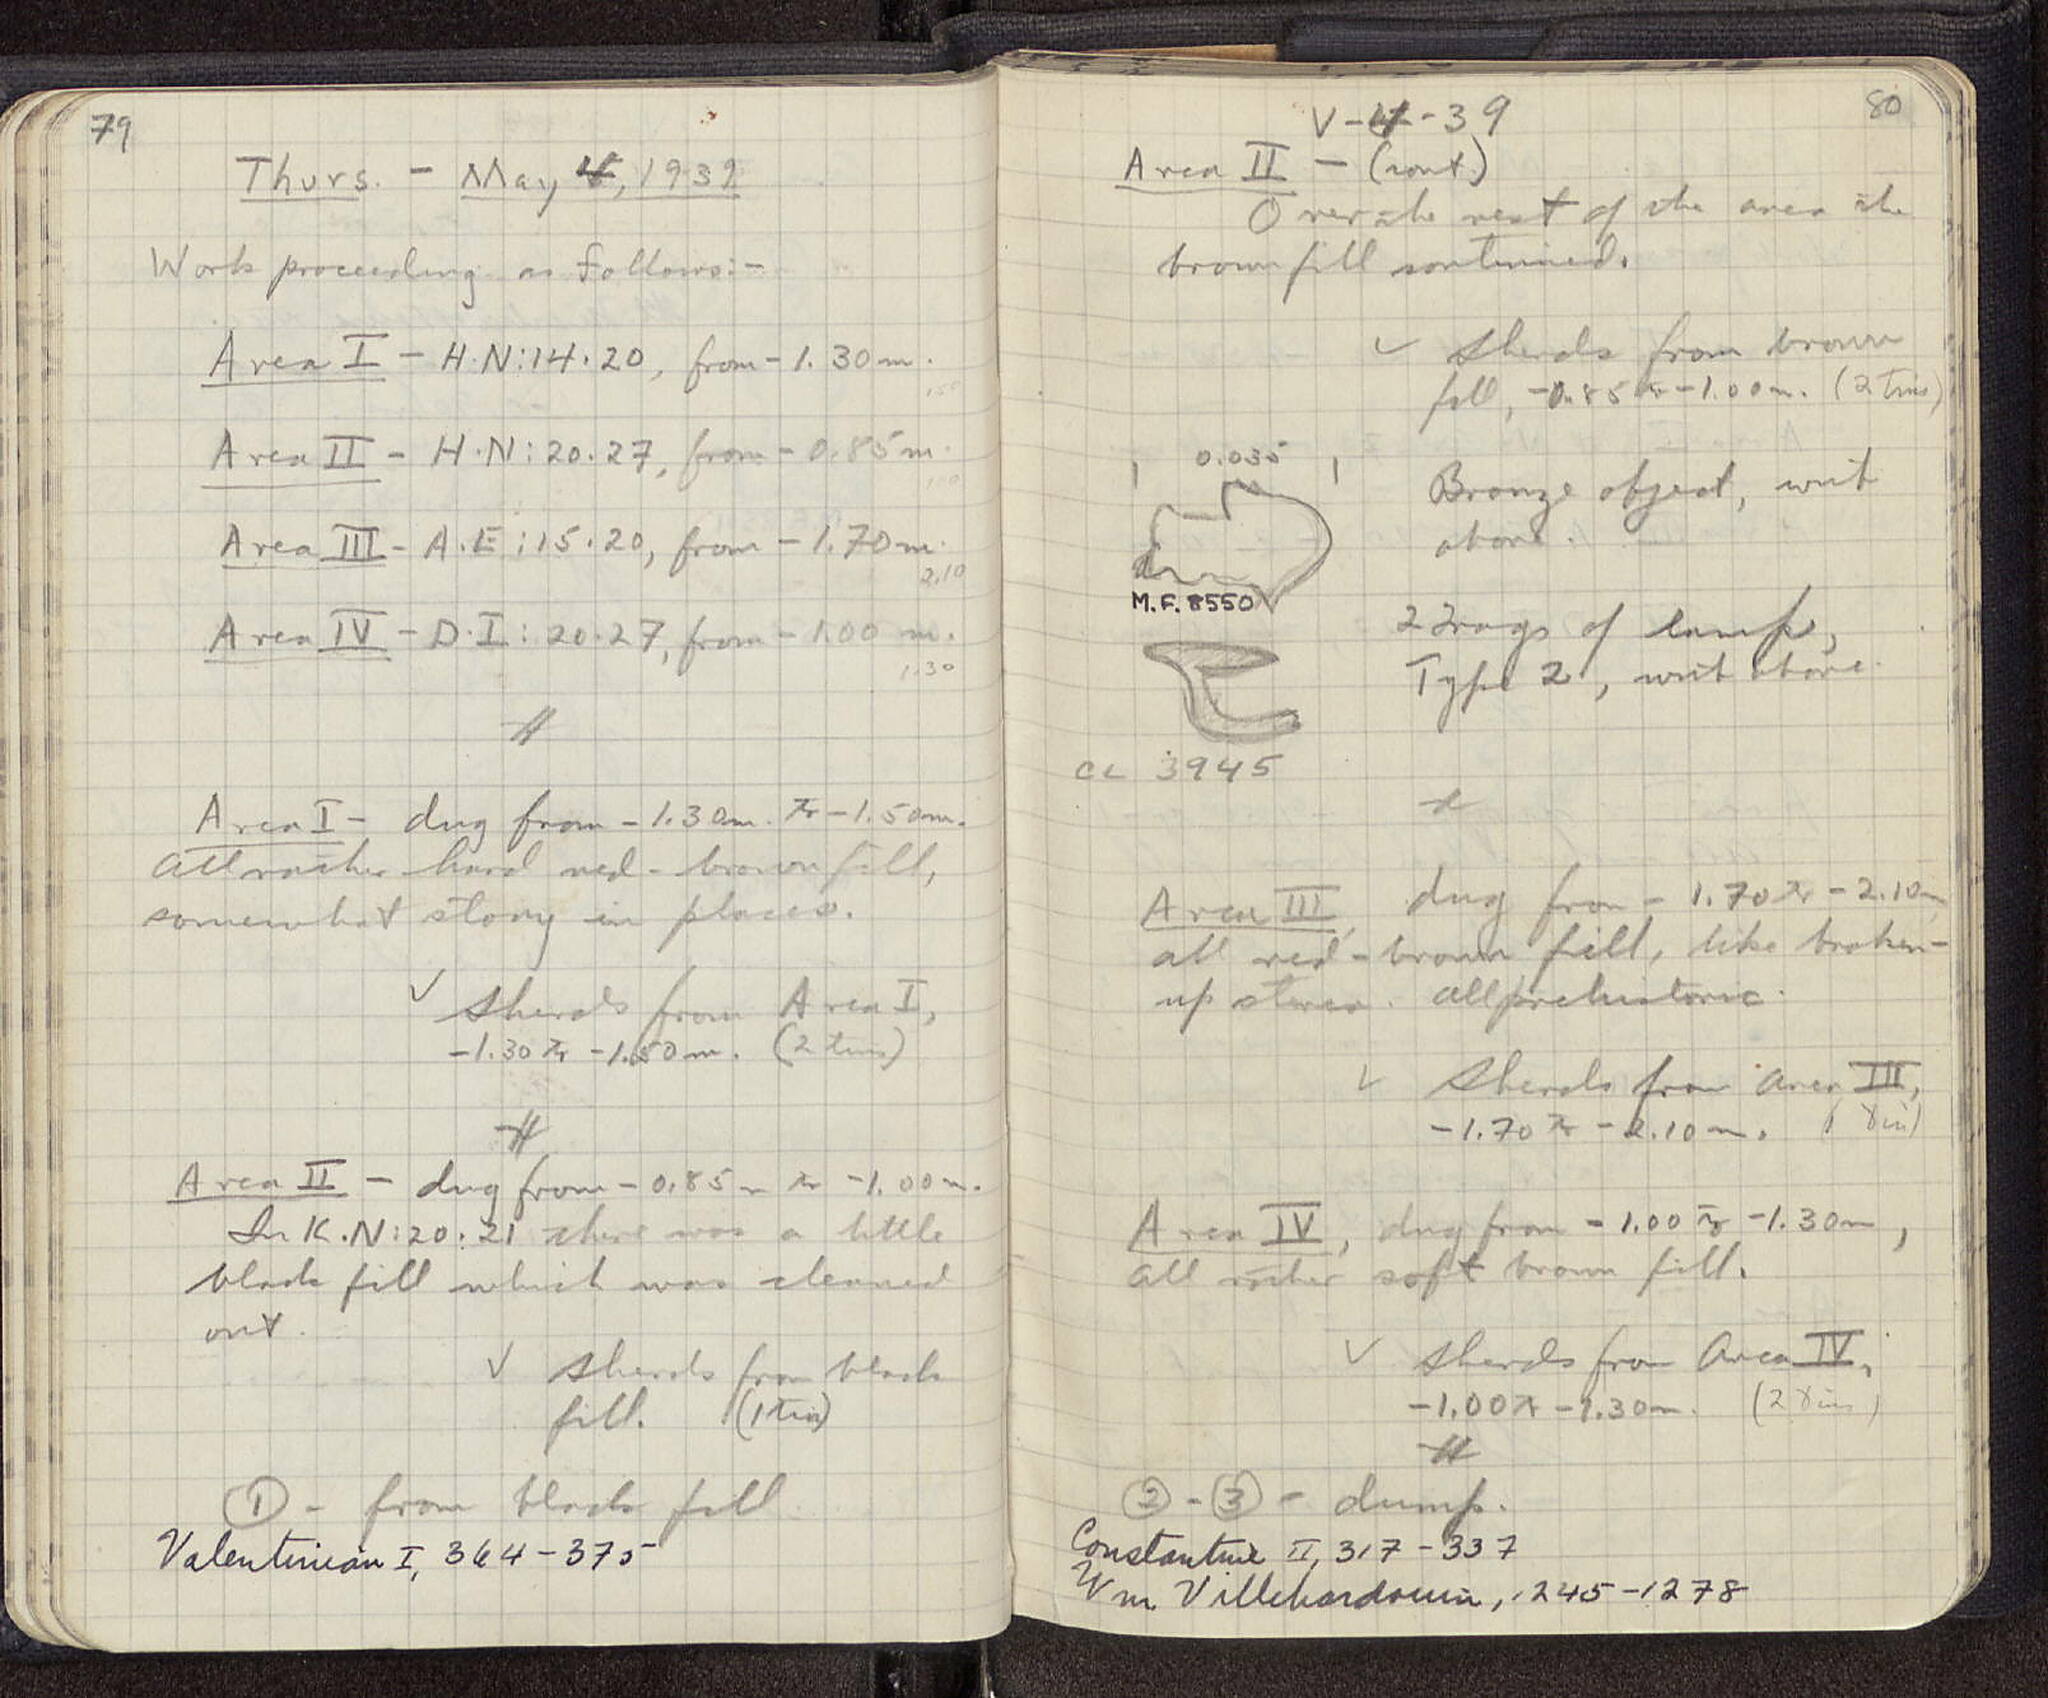 79
Thurs. - May 4, 1939
Work proceeding as follows:-
Area I - H.N:14.20, from -1.30m.
1.50
Area II - H.N:20.27, from -0.85m.
1.00
Area III - A.E:15.20, from -1.70m.
2.10
Area IV - D.I:20.27, from -1.00 m.
1.30
Area I - dug from -1.30m. to -1.50m.
All rather hard red-brown fill,
somewhat stony in places.
✓ Sherds from Area I,
-1.30 to -1.50m. (2 tins)
Area II - dug from -0.85m to -1.00m.
In K.N:20.21 there was a little
black fill which was cleaned
out.
✓ Sherds from black
fill. (1 tin)
① - from black fill
Valentinian I, 364-375
80
V-4-39
Area II - (cont.)
Over the rest of the area the
brown fill continued.
✓ Sherds from brown
fill, -0.85 to -1.00m. (2 tins)
0.035
Bronze object, writ
above.
M.F. 8550
2 Frags of lamp,
Type 2, writ above.
CL 3945
Area III, dug from -1.70 to -2.10m,
all red-brown fill, like broken-
up stereo. All prehistoric.
✓ Sherds from Area III,
-1.70 to -2.10m. (1 tin)
Area IV, dug from -1.00 to -1.30m,
all rather soft brown fill.
✓ Sherds from Area IV,
-1.00 to -1.30m. (2 tins)
② - ③ - dump.
Constantine II, 317-337
Wm Villehardouin, 1245-1278